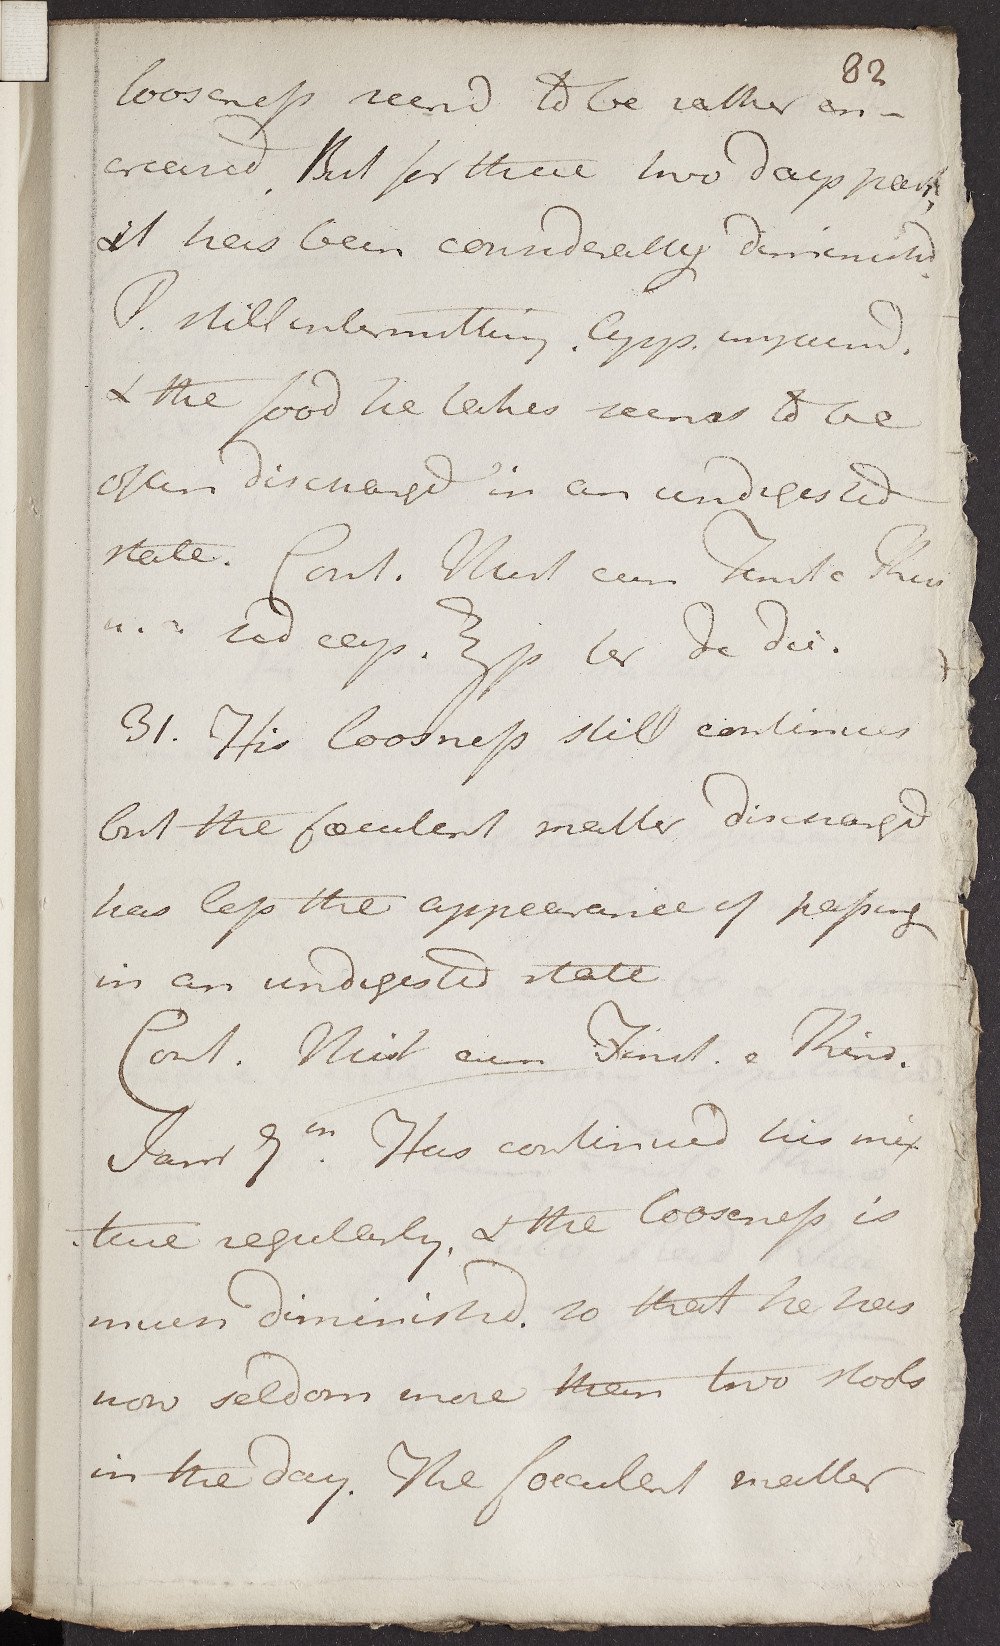 82
looseness seem'd to be rather en-
creased. But for these two days past,
it has been considerably diminish'd.
P. still intermitting. App. impair'd.
& the food he takes seems to be
often discharg'd in an undigested
state. Cont. Mist cum Tinct e Kino
sed cap. ℥ss ter de die.
31. His loosness still continues
but the fœculent matter discharg'd
has less the appearance of passing
in an undigested state
Cont. Mist cum Tinct. e Kino.
Jany 7th. Has continued his mix
-ture regularly, & the looseness is
much diminish'd. so that he has
now seldom more than two stools
in the day. The fœculent matter